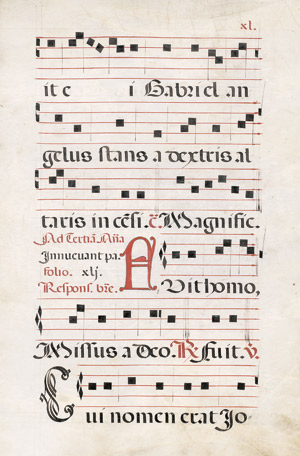 xl.
it e i Gabriel an
gelus stans a dextris al
taris in cēsi. c̄ Magnific.
Ad Tertiā. Aña
Innuevant pa
folio. xlj.
Respons. bṙe.
A, Vit homo,
Missus a deo. R̷ Fuit. V̷
Cui nomen erat Jo